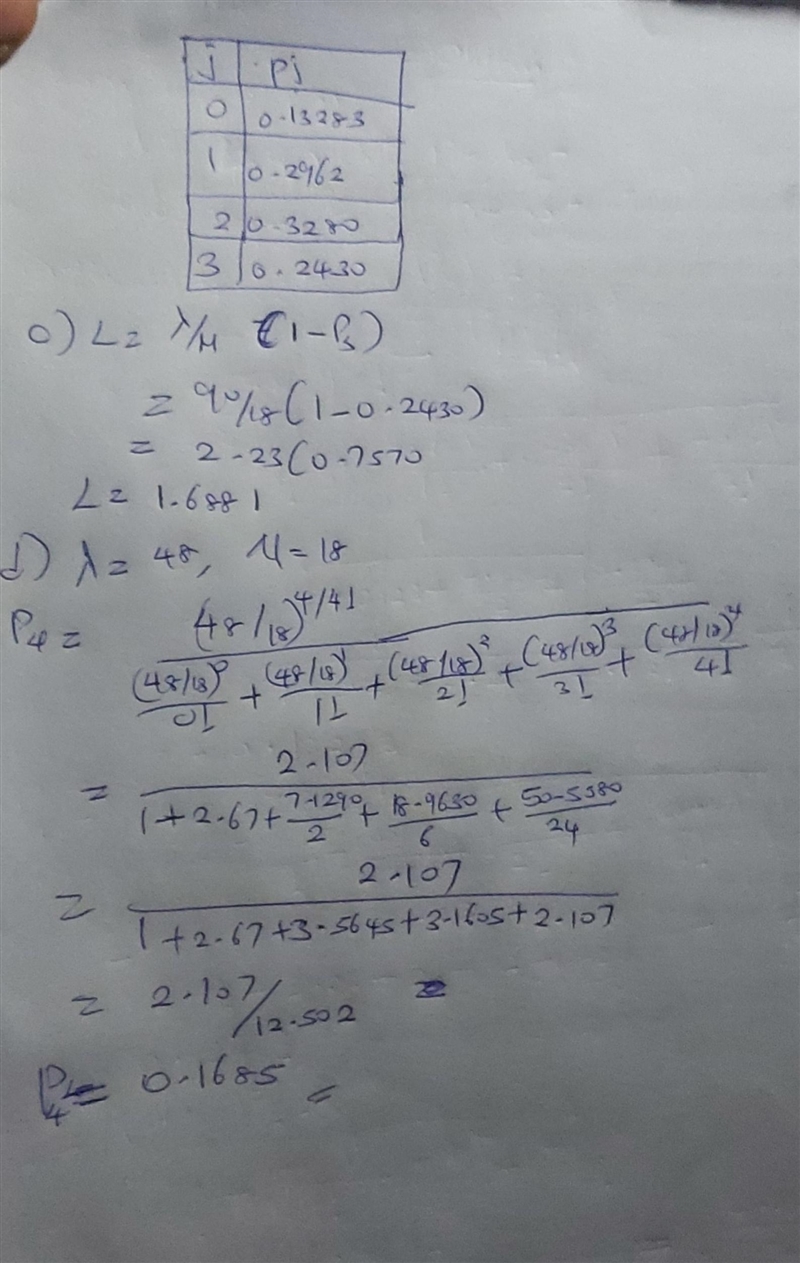 j Pj
0 0.13283
1 0.2962
2 0.3280
3 0.2430
c) L = λ/μ (1-P3)
= 90/18 (1-0.2430)
= 2.23(0.7570
L = 1.6881
d) λ = 48, μ = 18
P4 = (48/18)^4/4! / (48/18)^0/0! + (48/18)^1/1! + (48/18)^2/2! + (48/18)^3/3! + (48/18)^4/4!
= 2.107 / 1+2.67+7.1290/2 + 18.9630/6 + 50.5580/24
= 2.107 / 1+2.67+3.5645+3.1605+2.107
= 2.107/12.502 =
P4 = 0.1685 =